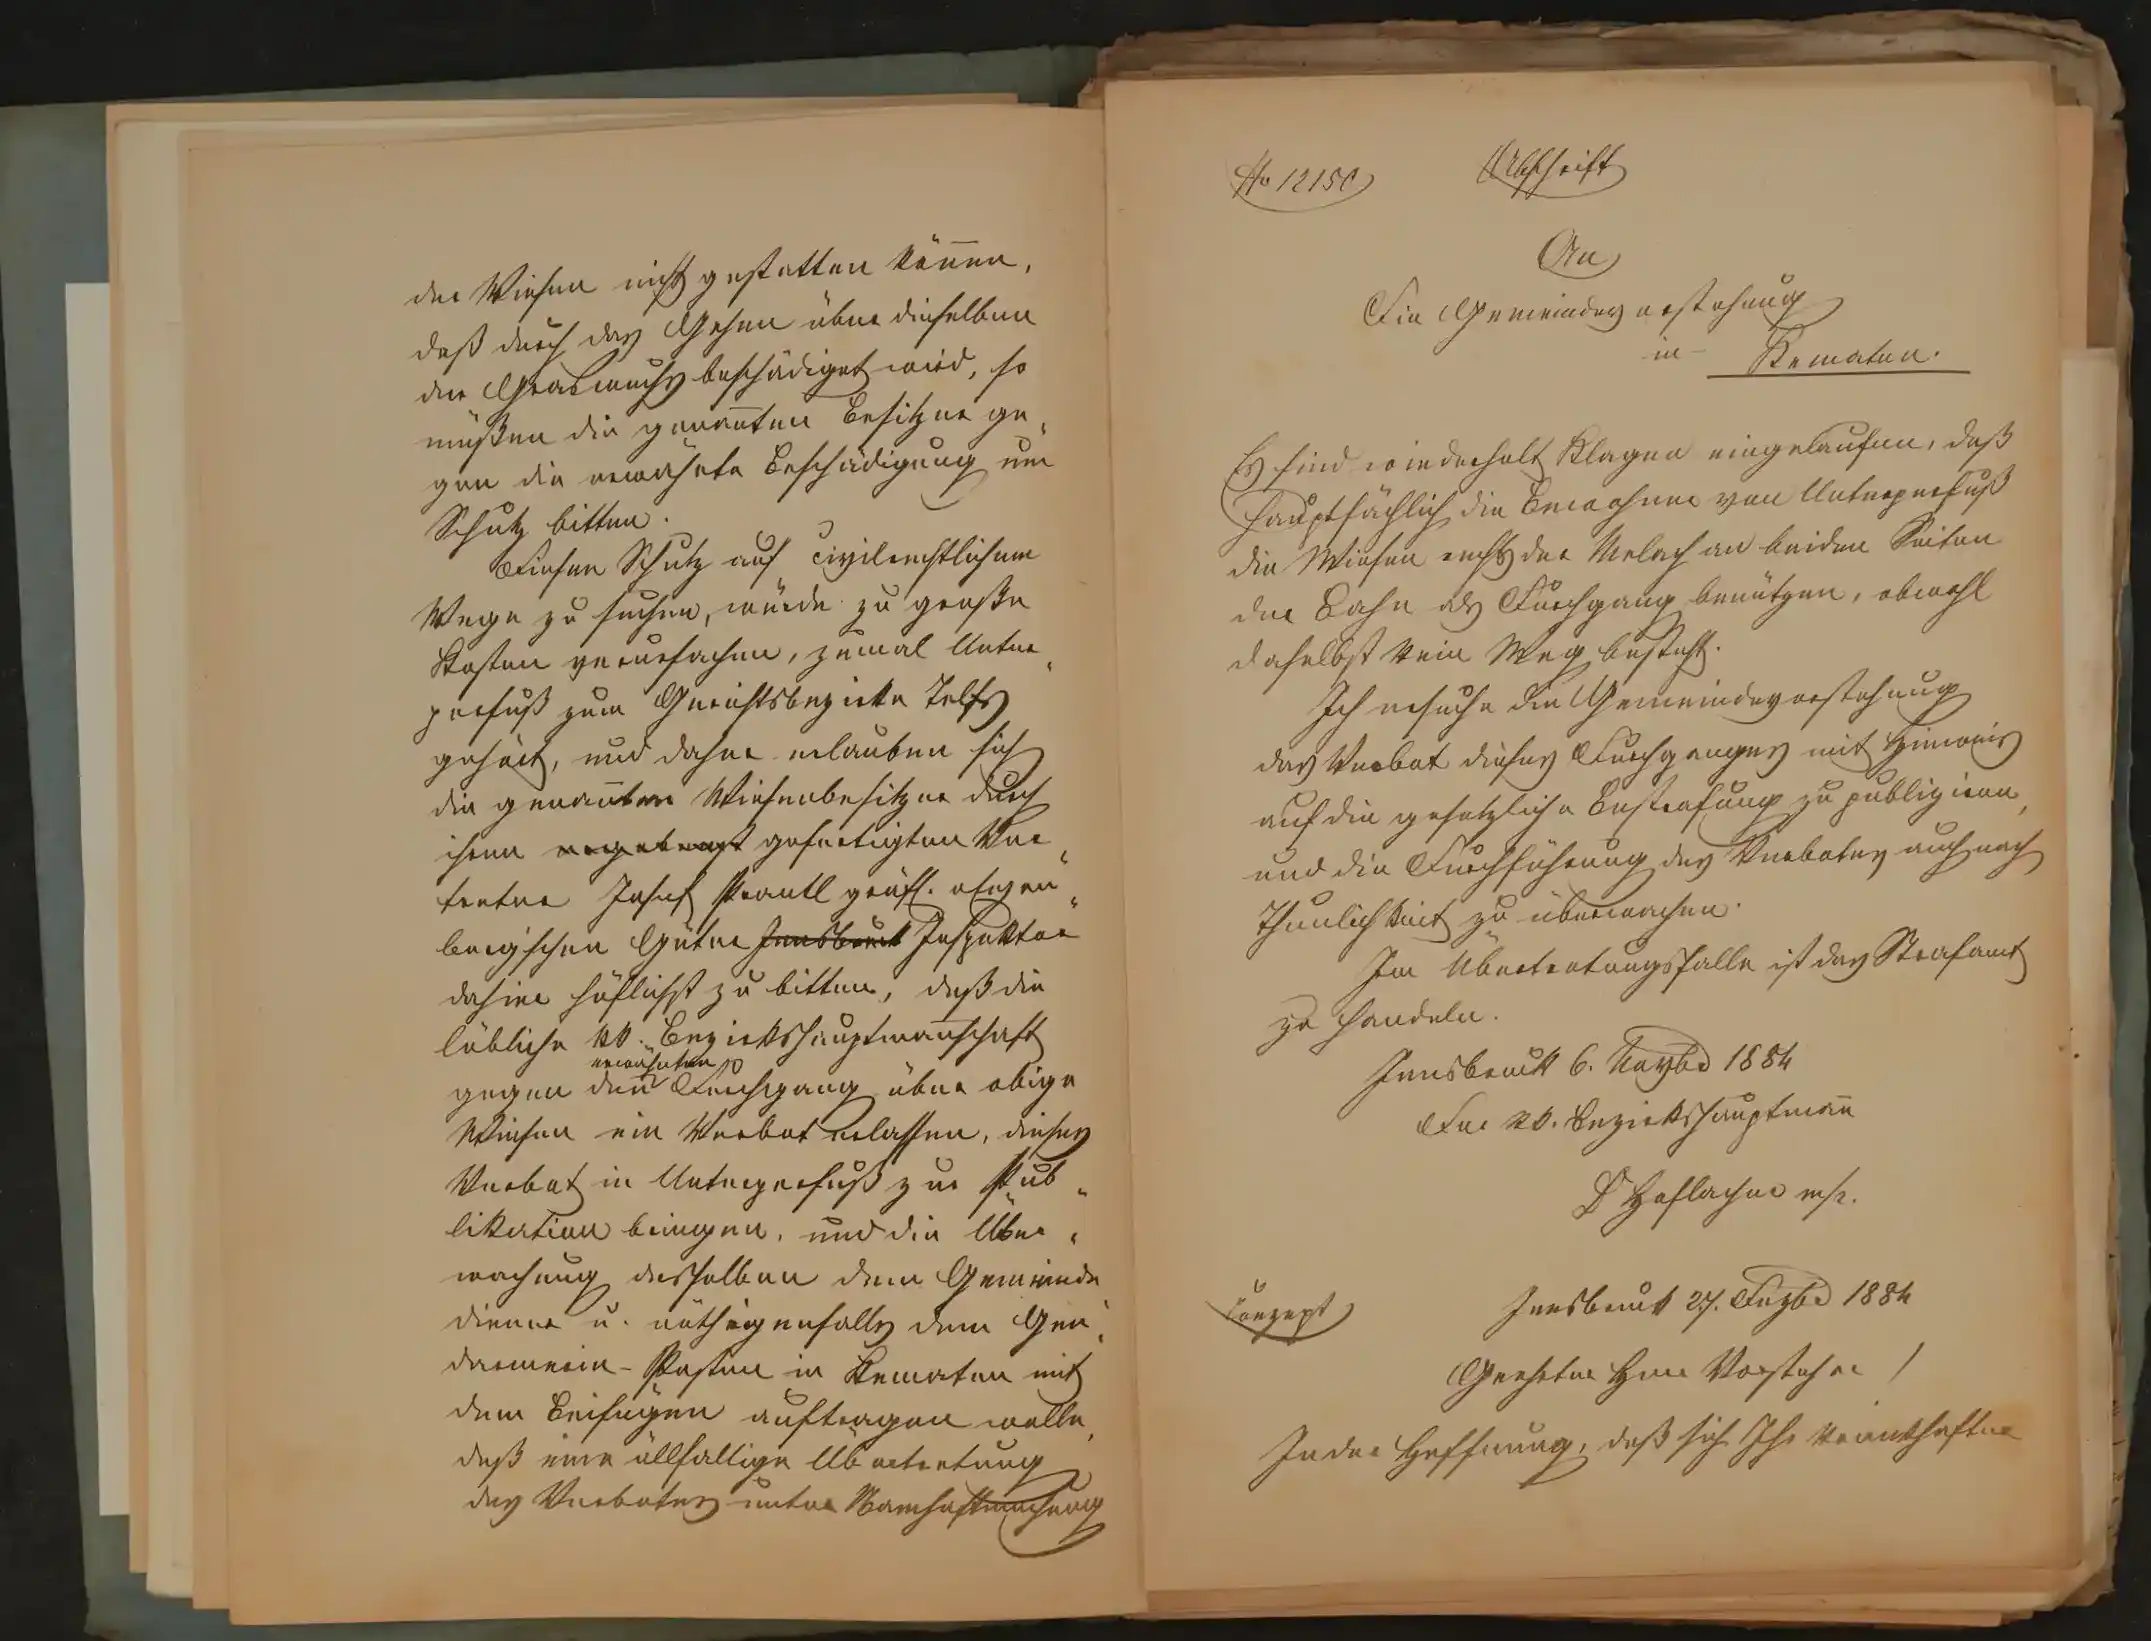 der Wiesen nicht gestatten können,
daß durch das Gehen über dieselben
der Graswuchs beschädiget wird, so
müßen die genannten Besitzer ge„
gen die erwähnte Beschädigung um
Schutz bitten.
Diesen Schutz auf civilrechtlichem
Wege zu suchen, würde zu große
Kosten verursachen, zumal Unter„
perfuß zum Gerichtsbezirke Telfs
gehört, und daher erlauben sich
die genannten Wiesenbesitzer durch
ihren gefertigten Ver„
treter Josef Prantl gräfl.
berg'schen Güter Innsbruck Inspektor
dahier höflichst zu bitten, daß die
löbliche kk. Bezirkshauptmannschaft
erwähnten
gegen den Durchgang über obige
Wiesen ein Verbot erlassen, dieses
Verbot in Unterperfuß zur Pub„
likation bringen, und die Über„
wachung desselben dem Gemeinde
diener u. nöthigenfalls dem Gen„
darmerie-Posten in Kematen mit
dem Beifügen auftragen wolle,
daß eine allfällige Übertretung
des Verbotes unter Namhaftmachung
No 12150
Abschrift
An
Die Gemeindevorstehung
in Kematen.
Es sind wiederholt Klagen eingelaufen, daß
hauptsächlich die Bewohner von Unterperfuß
die Wiesen rechts der Melach an beiden Seiten
der Bahn als Durchgang benützen, obwohl
daselbst kein Weg besteht.
Ich ersuche die Gemeindevorstehung
das Verbot dieses Durchganges mit Hinweis
auf die gesetzliche Bestrafung zu publiziren,
und die Durchführung des Verbotes auch nach
Thunlichkeit zu überwachen.
Im Übertretungsfalle ist das Strafamt
zu handeln.
Innsbruck 6. Novbr 1884
Der kk. Bezirkshauptmann
Dr Hoflacher m/p.
Conzept
Innsbruck 27. Dezbr 1884
Geehrter Herr Vorsteher!
In der Hoffnung, daß sich Ihr krankhafter